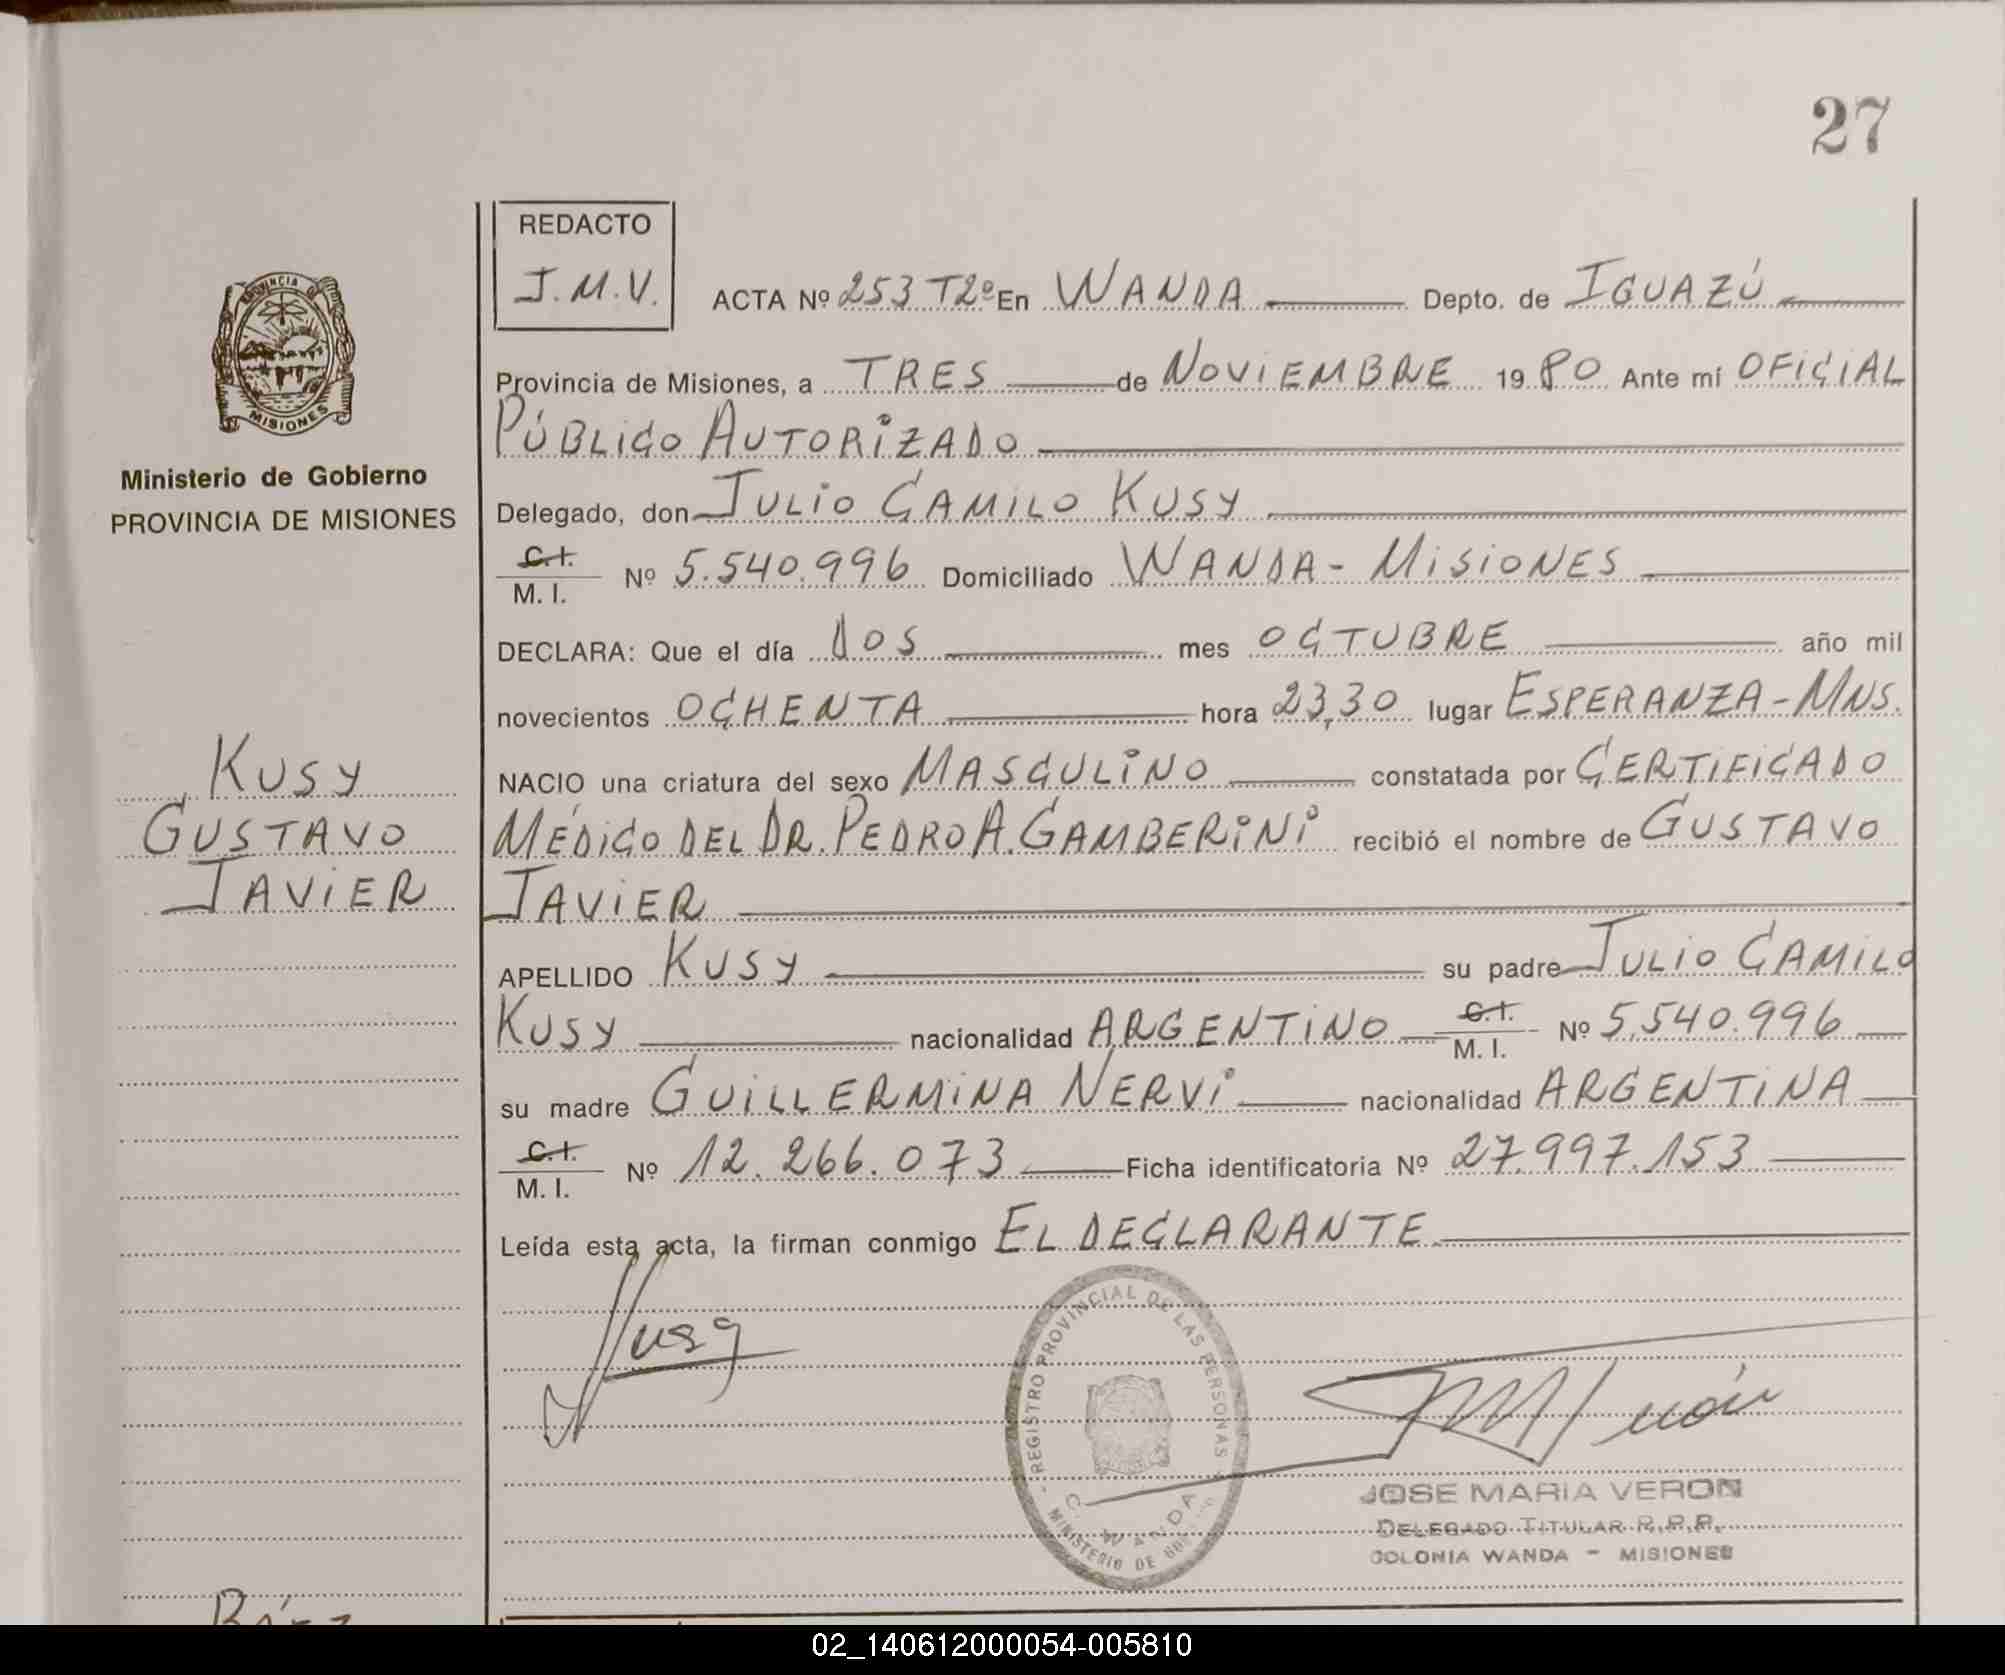 27
REDACTO
J.M.V.
ACTA Nº 253 T2º En WANDA Depto. de IGUAZÚ
PROVINCIA DE MISIONES
Provincia de Misiones, a TRES de NOVIEMBRE 1980 Ante mí OFICIAL
PÚBLICO AUTORIZADO
Ministerio de Gobierno
PROVINCIA DE MISIONES
Delegado, don JULIO CAMILO KUSY
C.I.
M. I. Nº 5.540.996 Domiciliado WANDA - MISIONES
DECLARA: Que el día DOS mes OCTUBRE año mil
novecientos OCHENTA hora 23,30 lugar ESPERANZA - MNS.
KUSY
GUSTAVO
JAVIER
NACIO una criatura del sexo MASCULINO constatada por CERTIFICADO
MÉDICO DEL DR. PEDRO A. GAMBERINI recibió el nombre de GUSTAVO
JAVIER
APELLIDO KUSY su padre JULIO CAMILO
KUSY nacionalidad ARGENTINO C.I. M. I. Nº 5.540.996
su madre GUILLERMINA NERVI nacionalidad ARGENTINA
C.I.
M. I. Nº 12.266.073 Ficha identificatoria Nº 27.997.153
Leída esta acta, la firman conmigo EL DECLARANTE
Kusy
REGISTRO PROVINCIAL DE LAS PERSONAS
C. WANDA
MINISTERIO DE
JOSE MARIA VERON
DELEGADO TITULAR R.P.P.
COLONIA WANDA - MISIONES
02_140612000054-005810